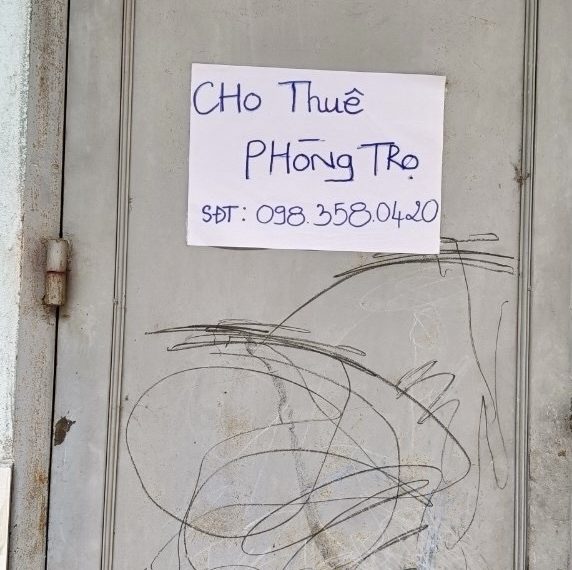 CHO Thuê
PHÒNG TRỌ
SĐT: 098.358.0420